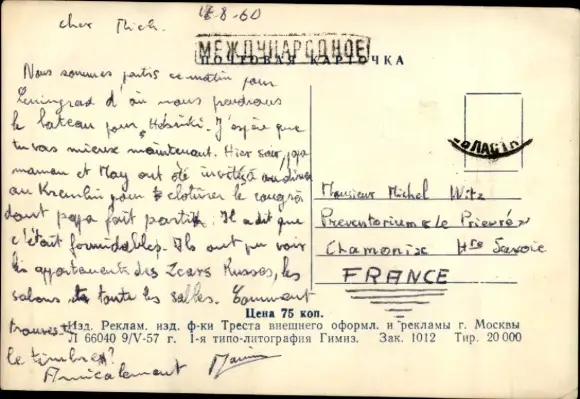 18-8-60
cher Mich.
МЕЖДУНАРОДНОЕ
ПОЧТОВАЯ КАРТОЧКА
Nous sommes partis ce matin pour
Leningrad d'où nous prendrons
le bateau pour Helsinki. J'espère que
tu vas mieux maintenant. Hier soir, papa
maman et May ont été invités au diner
au Kremlin pour clôturer le congrès
dont papa fait partie. Il a dit que
c'était formidable. Ils ont pu voir
les appartements des Tzars Russes, les
salons et toute les salles. Comment
trouves-tu
le timbre?
Amicalement
Monsieur Michel Witz
Preventorium "le Prieuré"
Chamonix Hte Savoie
FRANCE
Цена 75 коп.
Изд. Реклам. изд. ф-ки Треста внешнего оформл. и рекламы г. Москвы
Л 66040 9/V-57 г. 1-я типо-литография Гимиз. Зак. 1012 Тир. 20 000